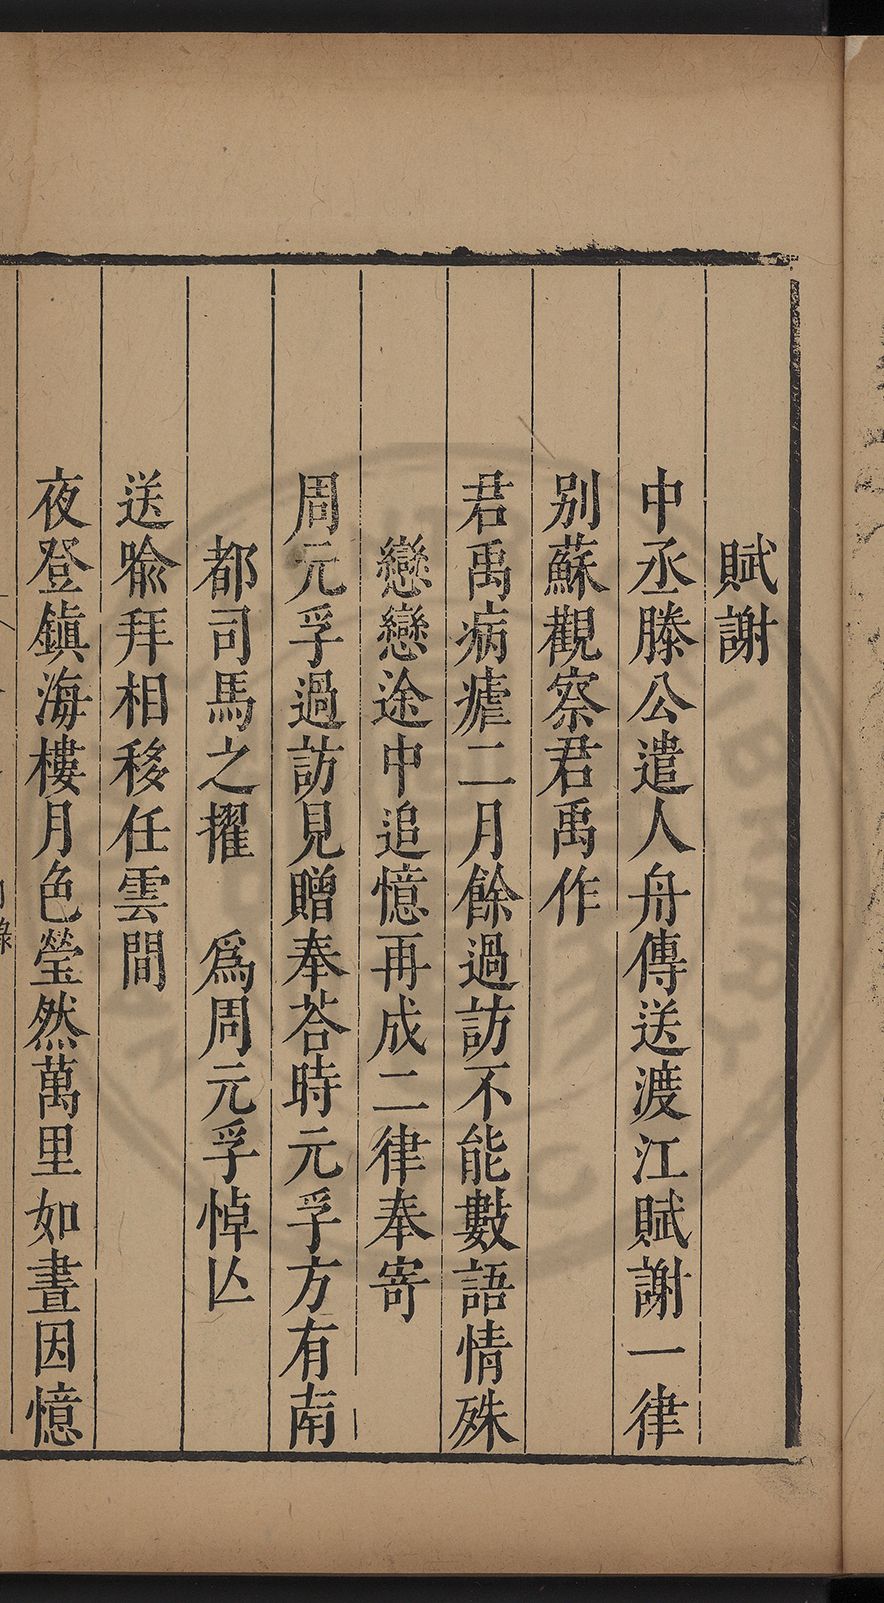 賦謝
中丞滕公遣人舟傳送渡江賦謝一律
別蘇觀察君禹作
君禹病瘧二月餘過訪不能數語情殊
戀戀途中追憶再成二律奉寄
周元孚過訪見贈奉荅時元孚方有南
都司馬之擢　爲周元孚悼亾
送喩拜相移任雲間
夜登鎮海樓月色瑩然萬里如晝因憶